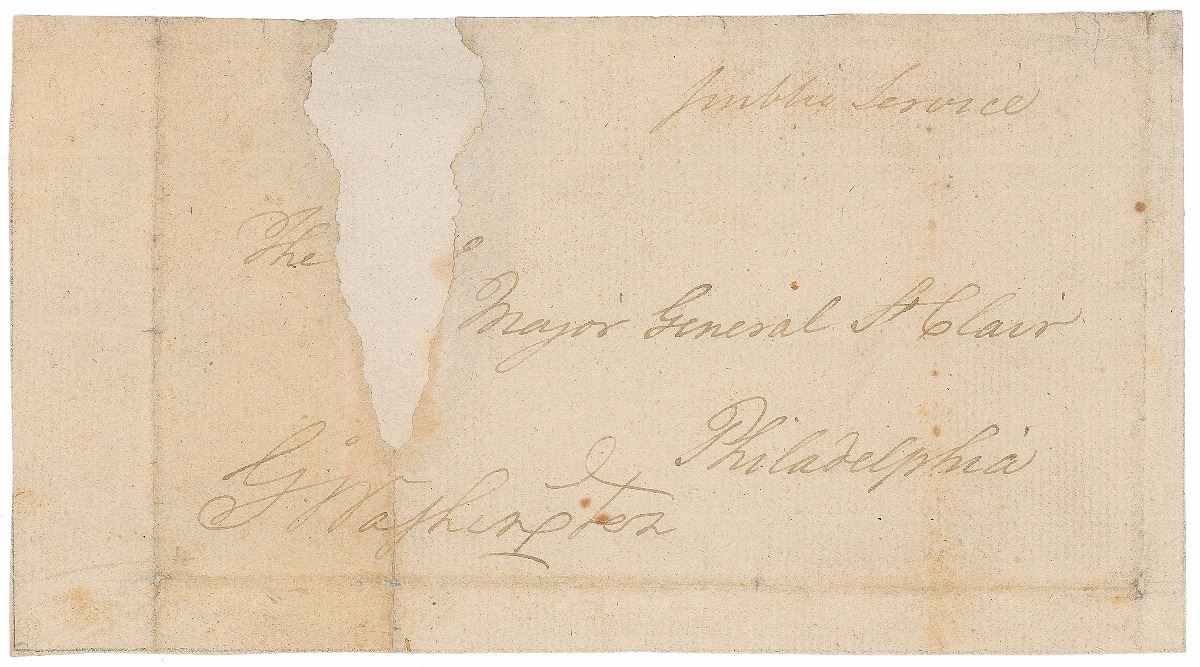 public Service
The
Major General St Clair
Philadelphia
Go: Washington